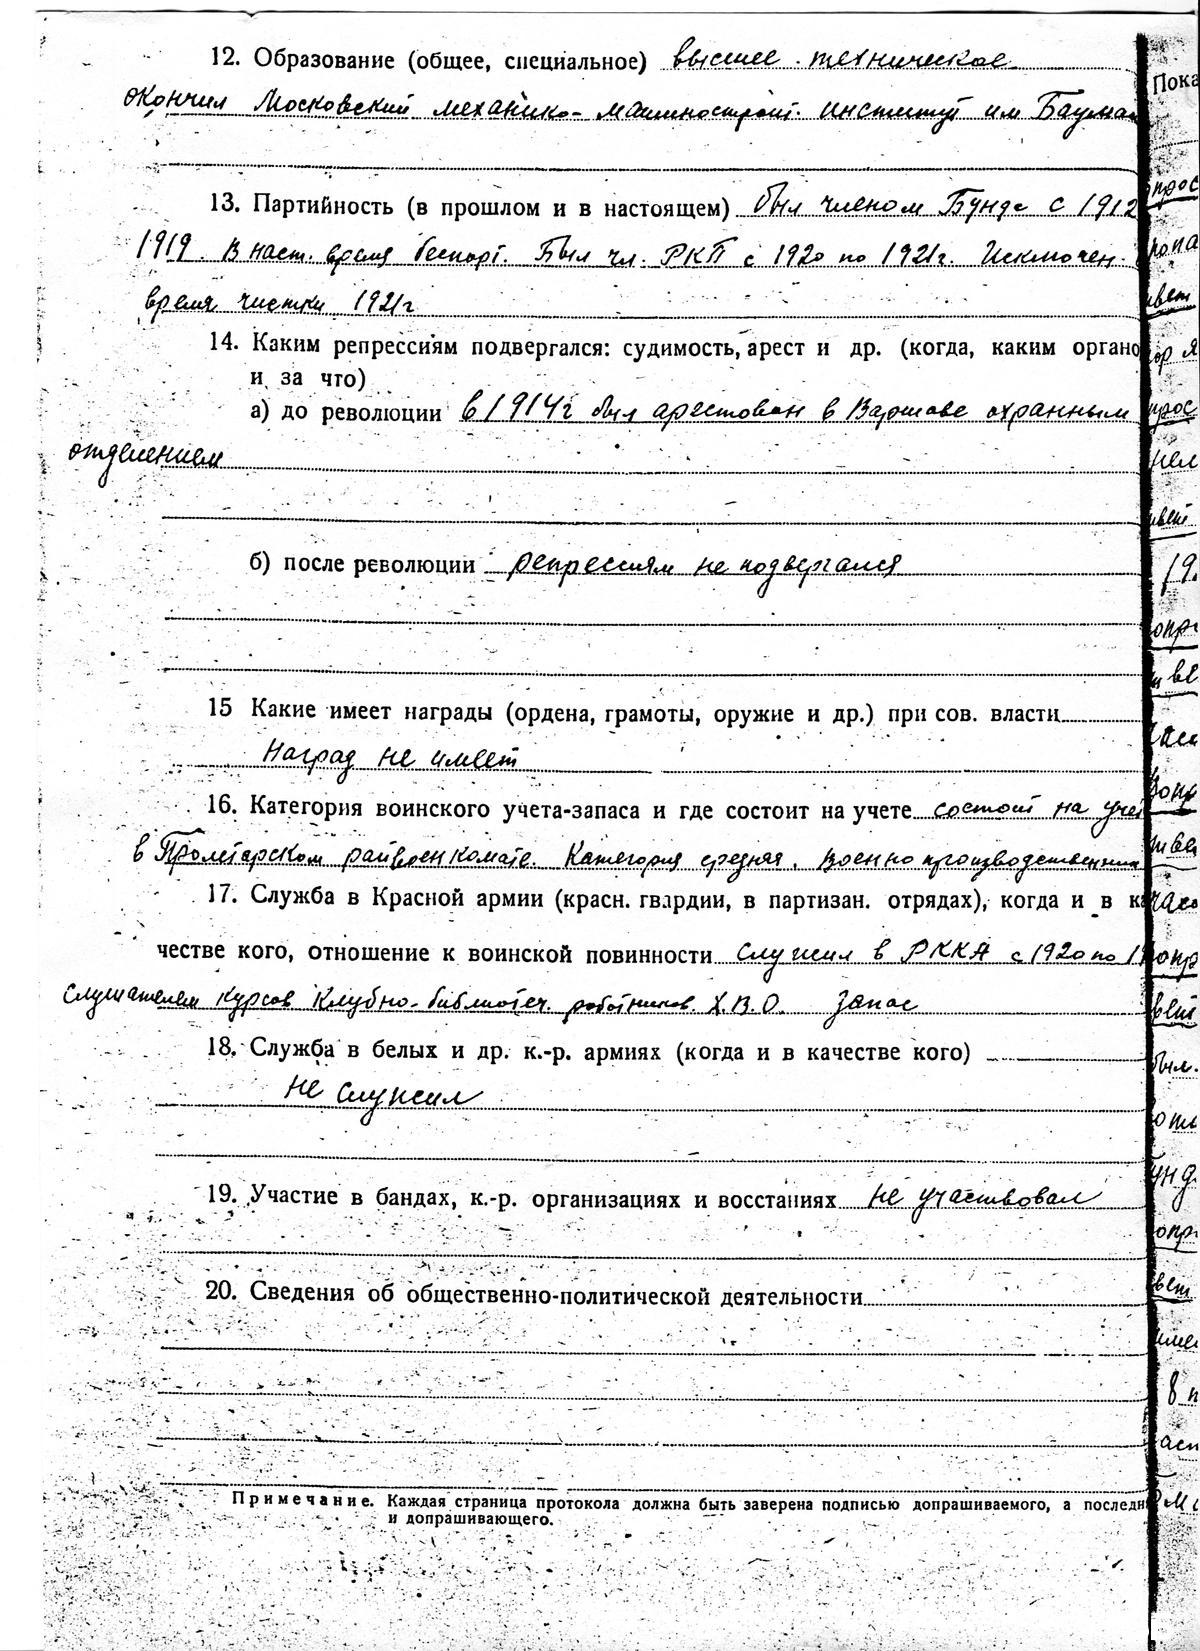 12. Образование (общее, специальное) высшее техническое
окончил Московский механико-машиностроит. институт им Баумана
13. Партийность (в прошлом и в настоящем) был членом Бунда с 1912
1919. В наст. время беспарт. Был чл. РКП с 1920 по 1921г. Исключен
время чистки 1921г
14. Каким репрессиям подвергался: судимость, арест и др. (когда, каким органо
и за что)
а) до революции в 1914г был арестован в Варшаве охранным
отделением
б) после революции репрессиям не подвергался
15 Какие имеет награды (ордена, грамоты, оружие и др.) при сов. власти
Наград не имеет
16. Категория воинского учета-запаса и где состоит на учете состоит на учет
в Пролетарском райвоенкомате. Категория средняя, военнопроизводственник
17. Служба в Красной армии (красн. гвардии, в партизан. отрядах), когда и в ка
честве кого, отношение к воинской повинности служил в РККА с 1920 по 19
слушателем курсов клубно-библиотеч. работников Х.В.О. запас
18. Служба в белых и др. к.-р. армиях (когда и в качестве кого)
не служил
19. Участие в бандах, к.-р. организациях и восстаниях не участвовал
20. Сведения об общественно-политической деятельности
Примечание. Каждая страница протокола должна быть заверена подписью допрашиваемого, а последн
и допрашивающего.
Пока